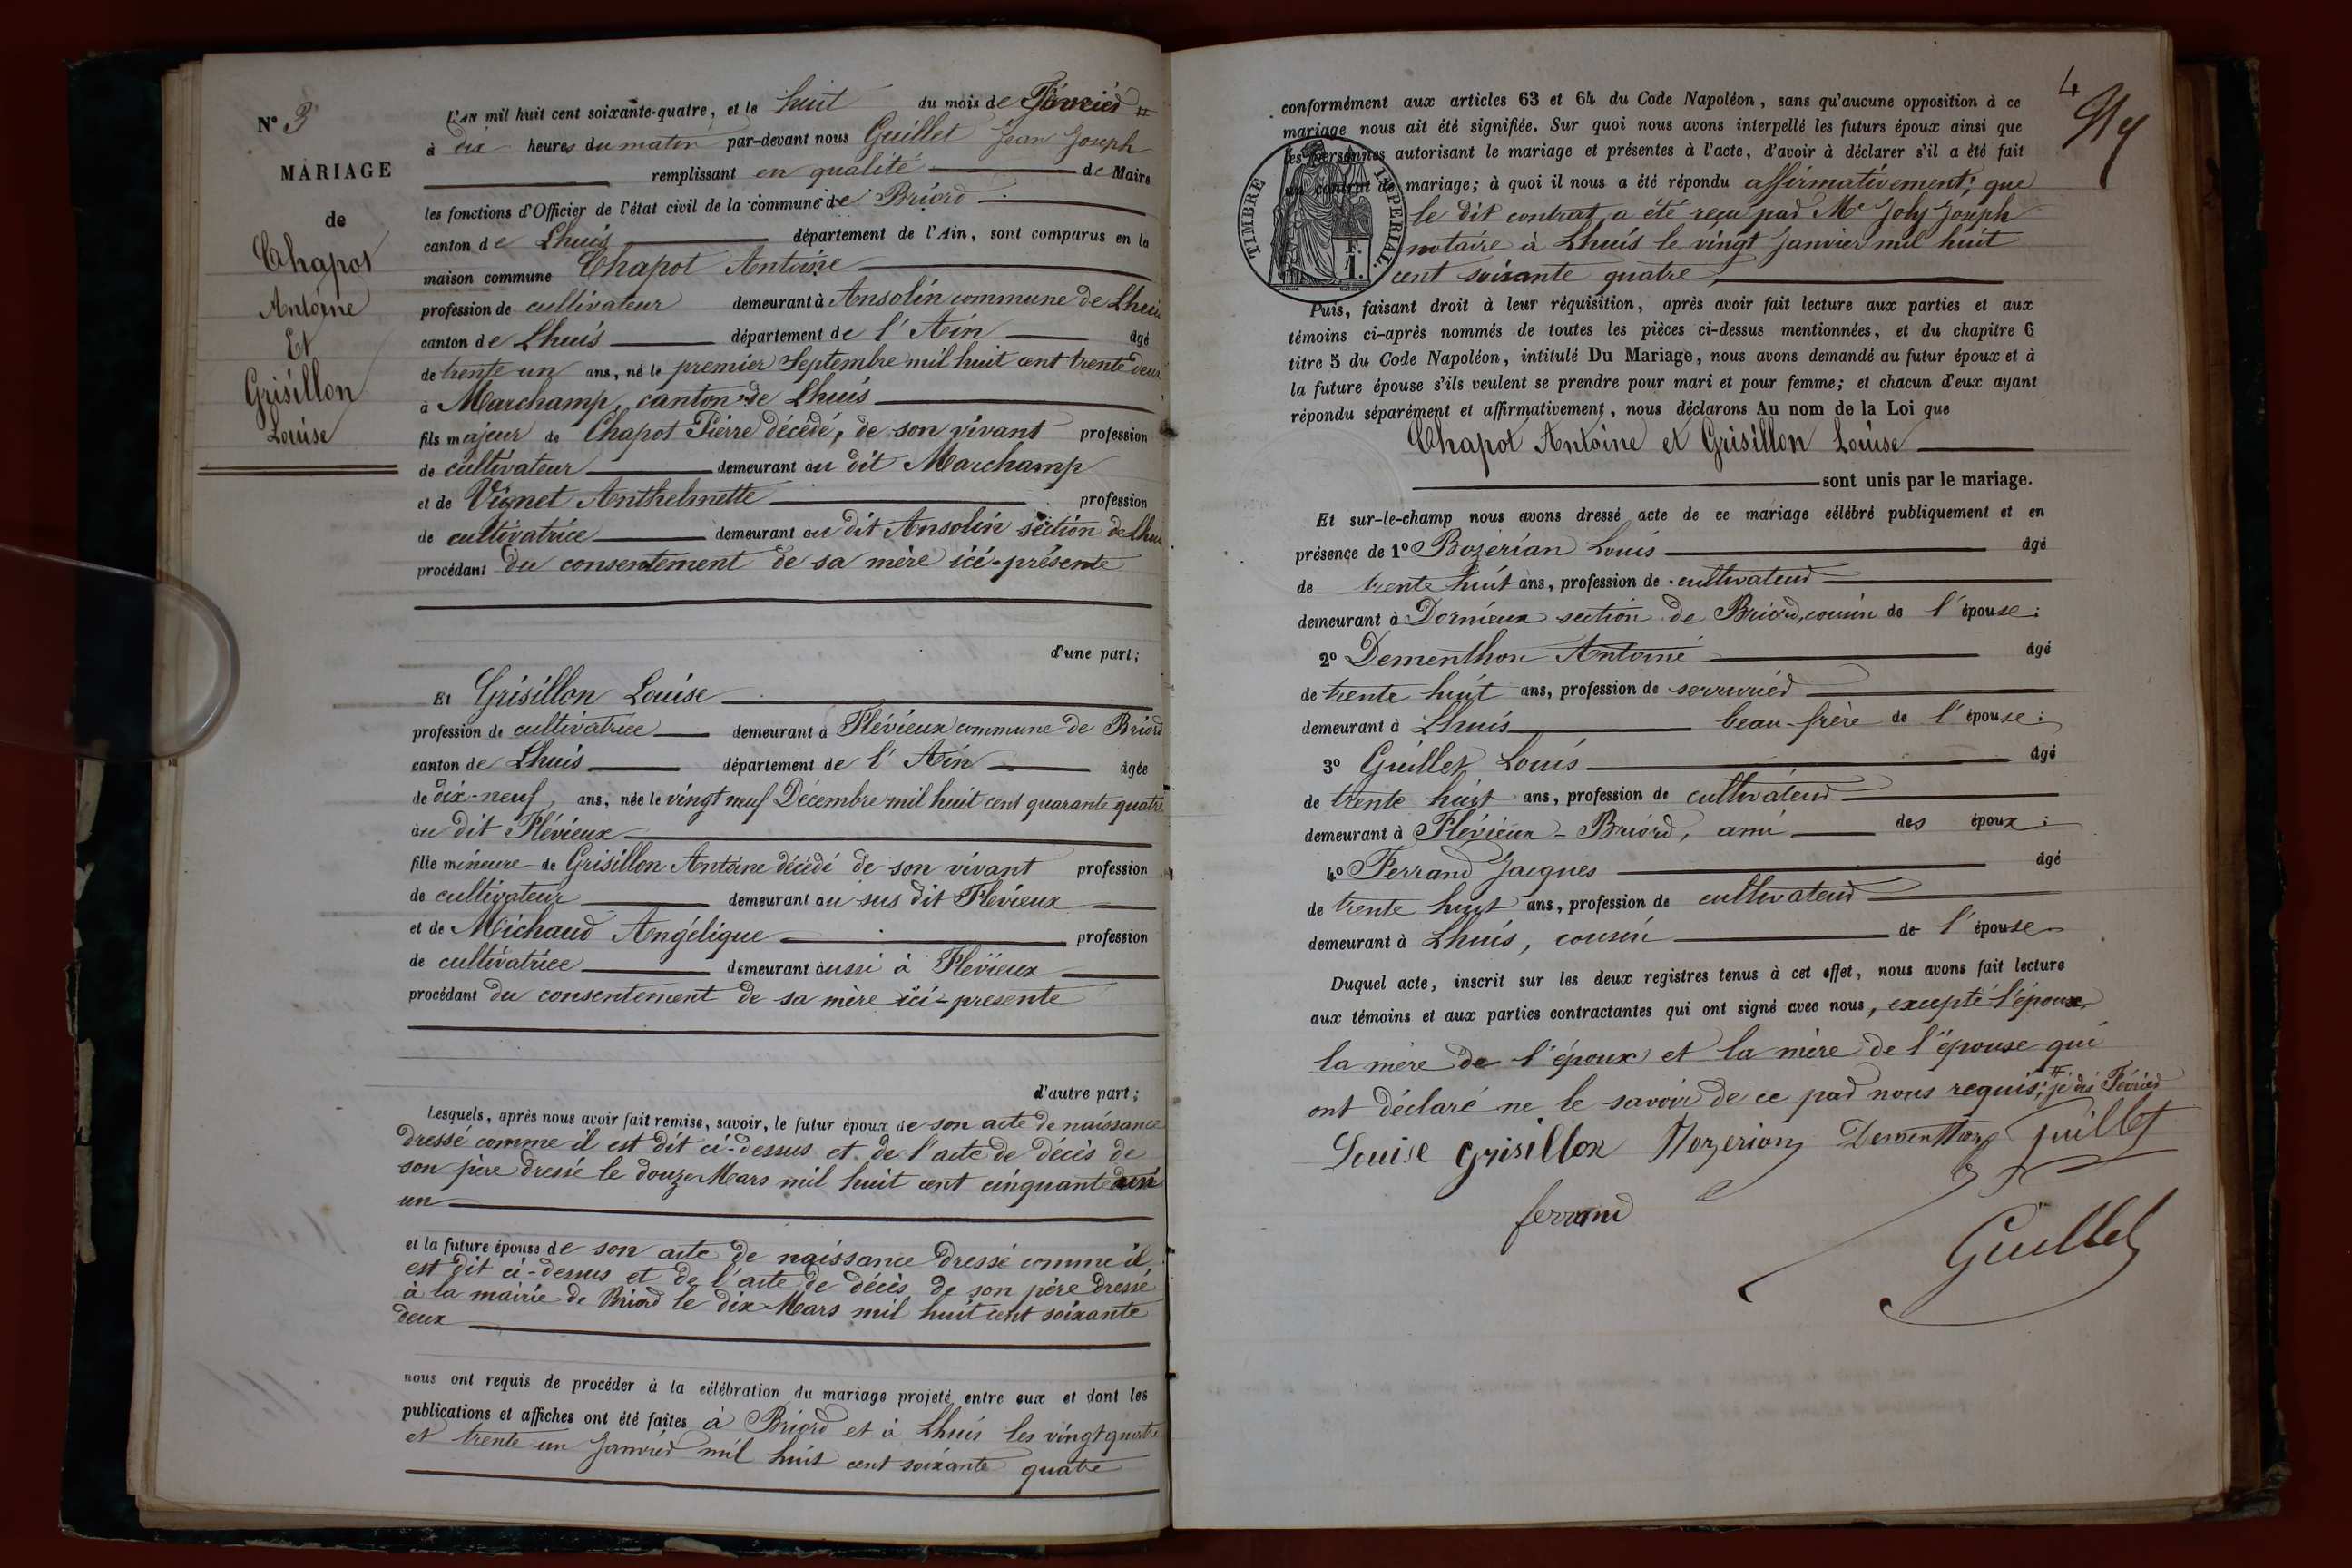 N° 3
MARIAGE
de
Chapot
Antoine
Et
Grisillon
Louise
L'AN mil huit cent soixante-quatre, et le huit du mois de Février #
à dix heures du matin par-devant nous Guillet Jean Joseph
remplissant en qualité de Maire
les fonctions d'Officier de l'état civil de la commune de Briord
canton de Lhuis département de l'Ain, sont comparus en la
maison commune Chapot Antoine
profession de cultivateur demeurant à Ansolin commune de Lhuis
canton de Lhuis département de l'Ain âgé
de trente un ans, né le premier Septembre mil huit cent trente deux
à Marchamp, canton de Lhuis
fils majeur de Chapot Pierre décédé, de son vivant profession
de cultivateur demeurant au dit Marchamp
et de Vignet Anthelmette profession
de cultivatrice demeurant au dit Ansolin section de Lhuis
procédant du consentement de sa mère ici-présente
d'une part;
Et Grisillon Louise
profession de cultivatrice demeurant à Flévieux commune de Briord
canton de Lhuis département de l'Ain âgée
de dix-neuf ans, née le vingt neuf Décembre mil huit cent quarante quatre
au dit Flévieux
fille mineure de Grisillon Antoine décédé de son vivant profession
de cultivateur demeurant au sus dit Flévieux
et de Michaud Angélique profession
de cultivatrice demeurant aussi à Flévieux
procédant du consentement de sa mère ici-présente
d'autre part;
Lesquels, après nous avoir fait remise, savoir, le futur époux de son acte de naissance
dressé comme il est dit ci-dessus et de l'acte de décès de
son père dressé le douze Mars mil huit cent cinquante
un
et la future épouse de son acte de naissance dressé comme il
est dit ci-dessus et de l'acte de décès de son père dressé
à la mairie de Briord le dix Mars mil huit cent soixante
deux
nous ont requis de procéder à la célébration du mariage projeté entre eux et dont les
publications et affiches ont été faites à Briord et à Lhuis les vingt quatre
et trente un Janvier mil huit cent soixante quatre
4
conformément aux articles 63 et 64 du Code Napoléon, sans qu'aucune opposition à ce
mariage nous ait été signifiée. Sur quoi nous avons interpellé les futurs époux ainsi que
les personnes autorisant le mariage et présentes à l'acte, d'avoir à déclarer s'il a été fait
un contrat de mariage; à quoi il nous a été répondu affirmativement; que
le dit contrat a été reçu par Me Joly Joseph
notaire à Lhuis le vingt Janvier mil huit
cent soixante quatre
TIMBRE IMPERIAL.
F.
1.
Puis, faisant droit à leur réquisition, après avoir fait lecture aux parties et aux
témoins ci-après nommés de toutes les pièces ci-dessus mentionnées, et du chapitre 6
titre 5 du Code Napoléon, intitulé Du Mariage, nous avons demandé au futur époux et à
la future épouse s'ils veulent se prendre pour mari et pour femme; et chacun d'eux ayant
répondu séparément et affirmativement, nous déclarons Au nom de la Loi que
Chapot Antoine et Grisillon Louise
sont unis par le mariage.
Et sur-le-champ nous avons dressé acte de ce mariage célébré publiquement et en
présence de 1° Bozerian Louis âgé
de trente huit ans, profession de cultivateur
demeurant à Dornieux section de Briord, cousin de l'épouse;
2° Dementhon Antoine âgé
de trente huit ans, profession de serrurier
demeurant à Lhuis beau-frère de l'épouse;
3° Guillet Louis âgé
de trente huit ans, profession de cultivateur
demeurant à Flévieux - Briord, ami des époux;
4° Ferrand Jacques âgé
de trente huit ans, profession de cultivateur
demeurant à Lhuis, cousin de l'épouse
Duquel acte, inscrit sur les deux registres tenus à cet effet, nous avons fait lecture
aux témoins et aux parties contractantes qui ont signé avec nous, excepté l'époux,
la mère de l'époux et la mère de l'épouse qui
ont déclaré ne le savoir de ce par nous requis; # je dis Février
Louise Grisillon Bozerian Dementhon Guillet
ferrand
Guillet